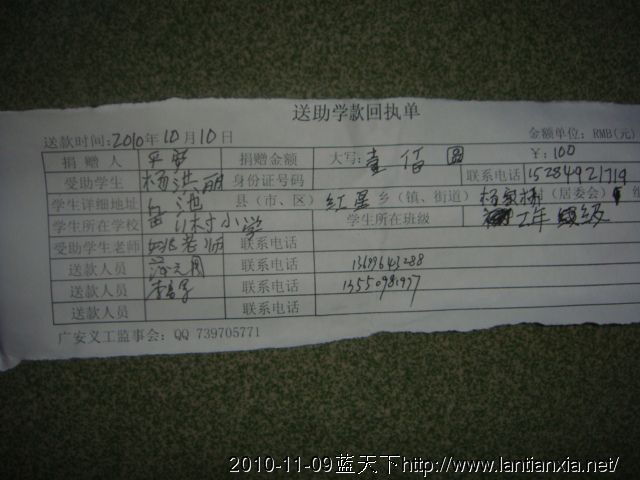 送助学款回执单
送款时间:2010年10月10日 金额单位:RMB(元)
捐赠人 平安 捐赠金额 大写:壹佰圆 ¥:100
受助学生 杨洪丽 身份证号码 联系电话 15284921719
学生详细地址 岳池 县(市、区) 红星 乡(镇、街道) 杨家 (居委会)
学生所在学校 苗儿村小学 学生所在班级 年级
受助学生老师 姚老师 联系电话
送款人员 联系电话 13699643288
送款人员 联系电话
送款人员 联系电话
广安义工监事会:QQ 739705771
2010-11-09蓝天下http://www.lantianxia.net/